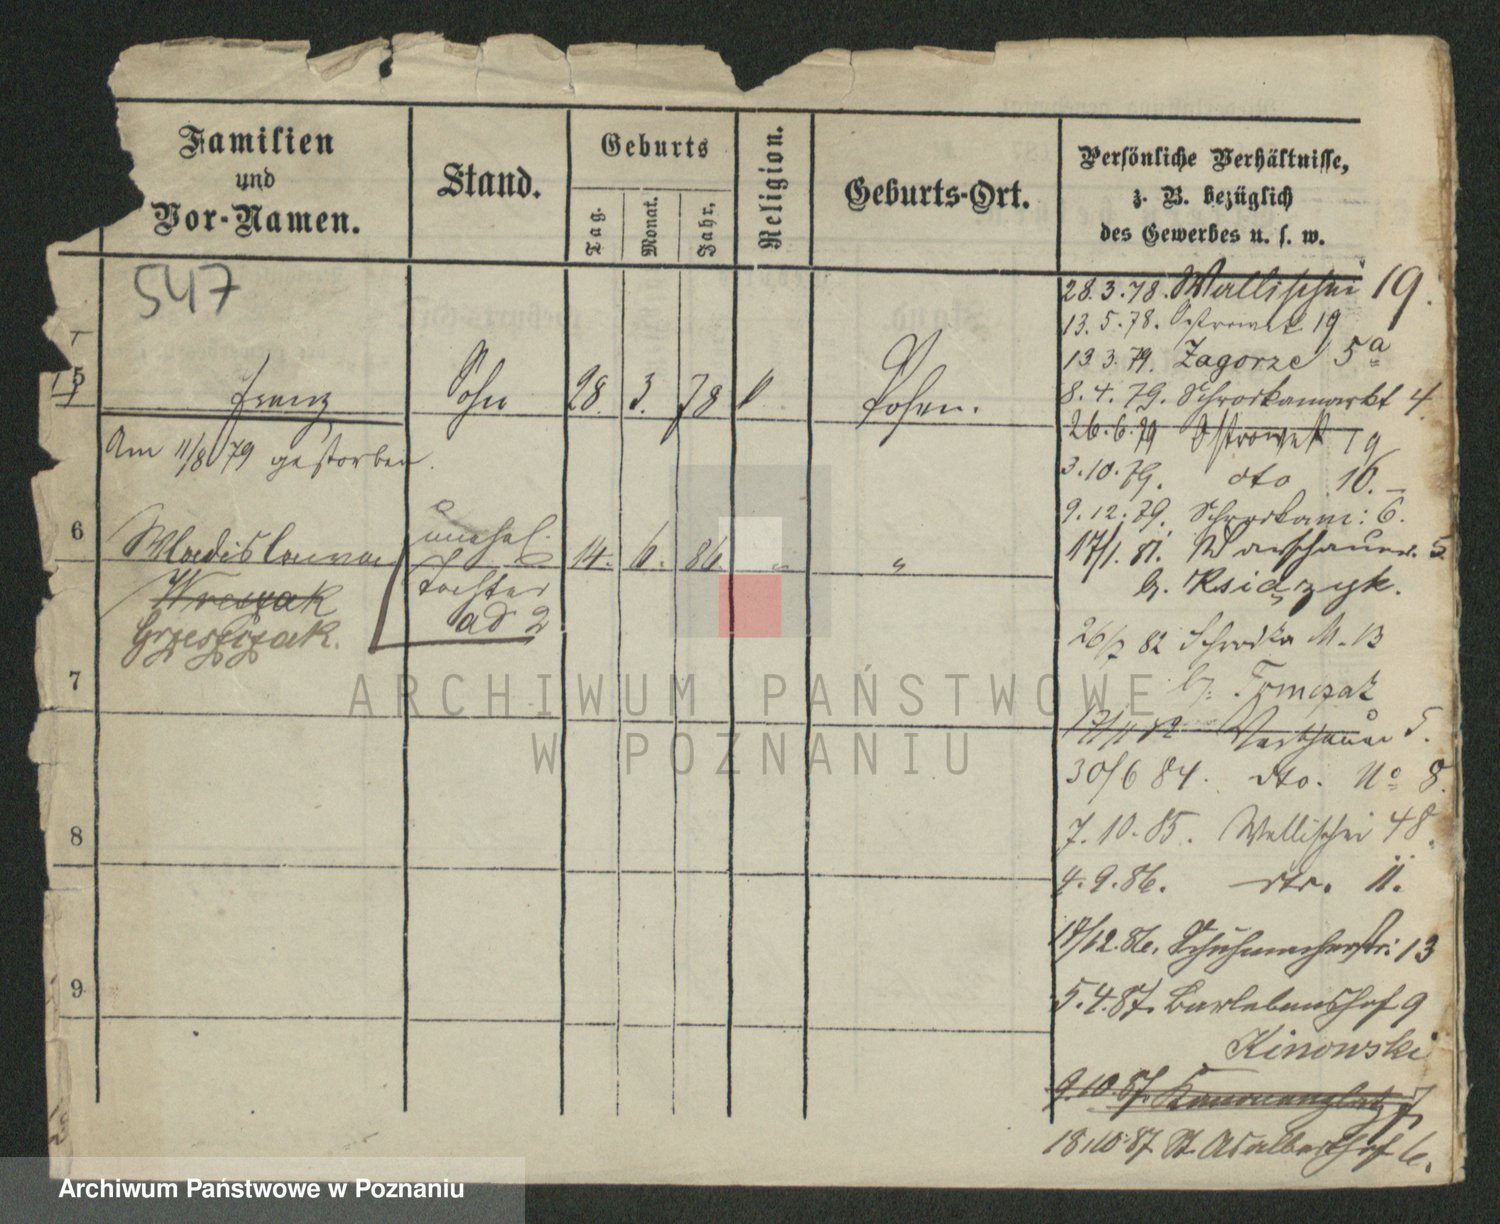 Familien
und
Vor-Namen.
Stand.
Geburts
Tag.
Monat.
Jahr.
Religion.
Geburts-Ort.
Persönliche Verhältnisse,
z. B. bezüglich
des Gewerbes u. s. w.
547
5
Franz
Sohn
28.
3.
78
Posen.
Am 11/8 79 gestorben.
6
Wladislawa
unehel.
Tochter
ad 2
14.
6.
86.
"
"
Grzeszczak.
7
8
9
28.3.78. Wallischei 19.
13.5.78. Ostrowek 19
13.3.79. Zagorze 5a
8.4.79. Schrodkamarkt 4.
26.6.79 Ostrowek 19
3.10.79. dto 16.
9.12.79. Schrodkam: 6.
17/1.81. Warschauer. 5
b. Książyk.
26/7 82 Schrodka M. 13
b. Tomczak
17/11 82 Warschauer 5.
30/6 84. dto. No 8.
7.10.85. Wallischei 48.
4.9.86. dto. 11.
17/12.86. Schuhmacherstr: 13
5.4.87. Barlebenshof 9
Kinowski
9.10.87. Kanonenplatz 7
18.10.87 St Adalberthof 6.
ARCHIWUM PAŃSTWOWE
W POZNANIU
Archiwum Państwowe w Poznaniu